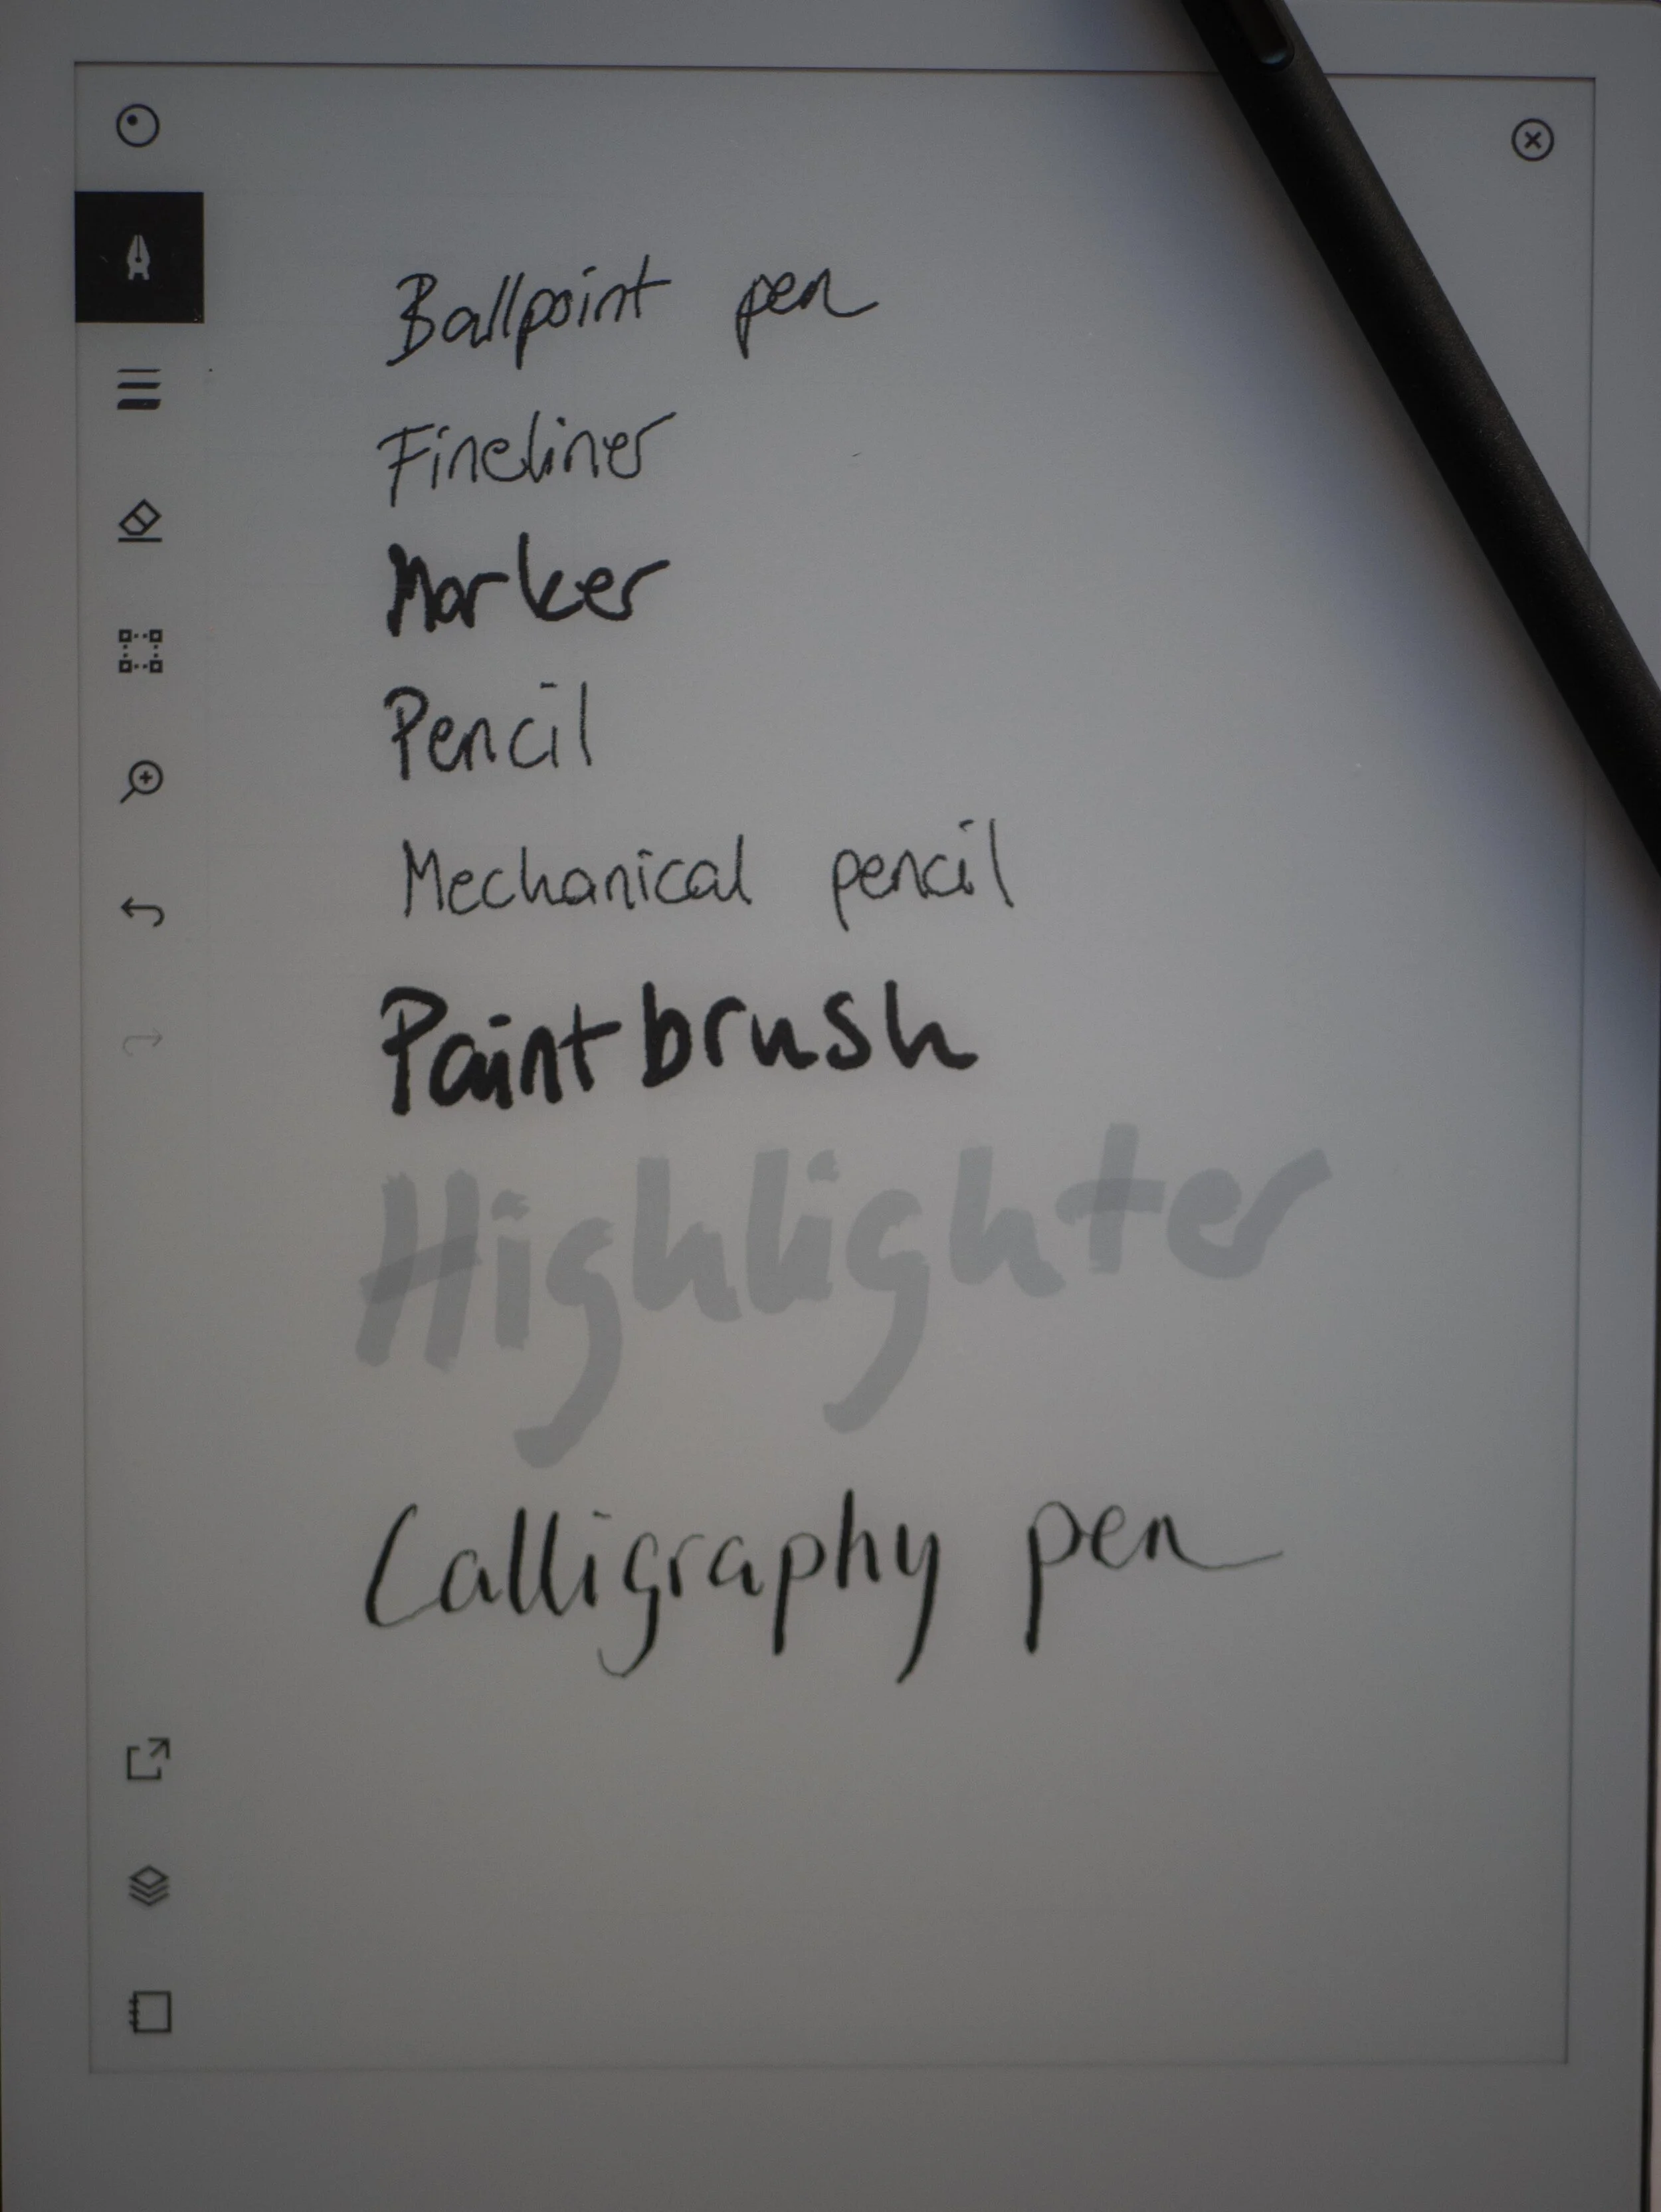 Ballpoint pen
Fineliner
Marker
Pencil
Mechanical pencil
Paintbrush
Highlighter
Calligraphy pen